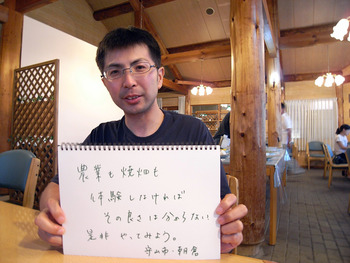 農業も焼畑も
体験しなければ
その良さは分からない
是非やってみよう。
守山市・朝倉